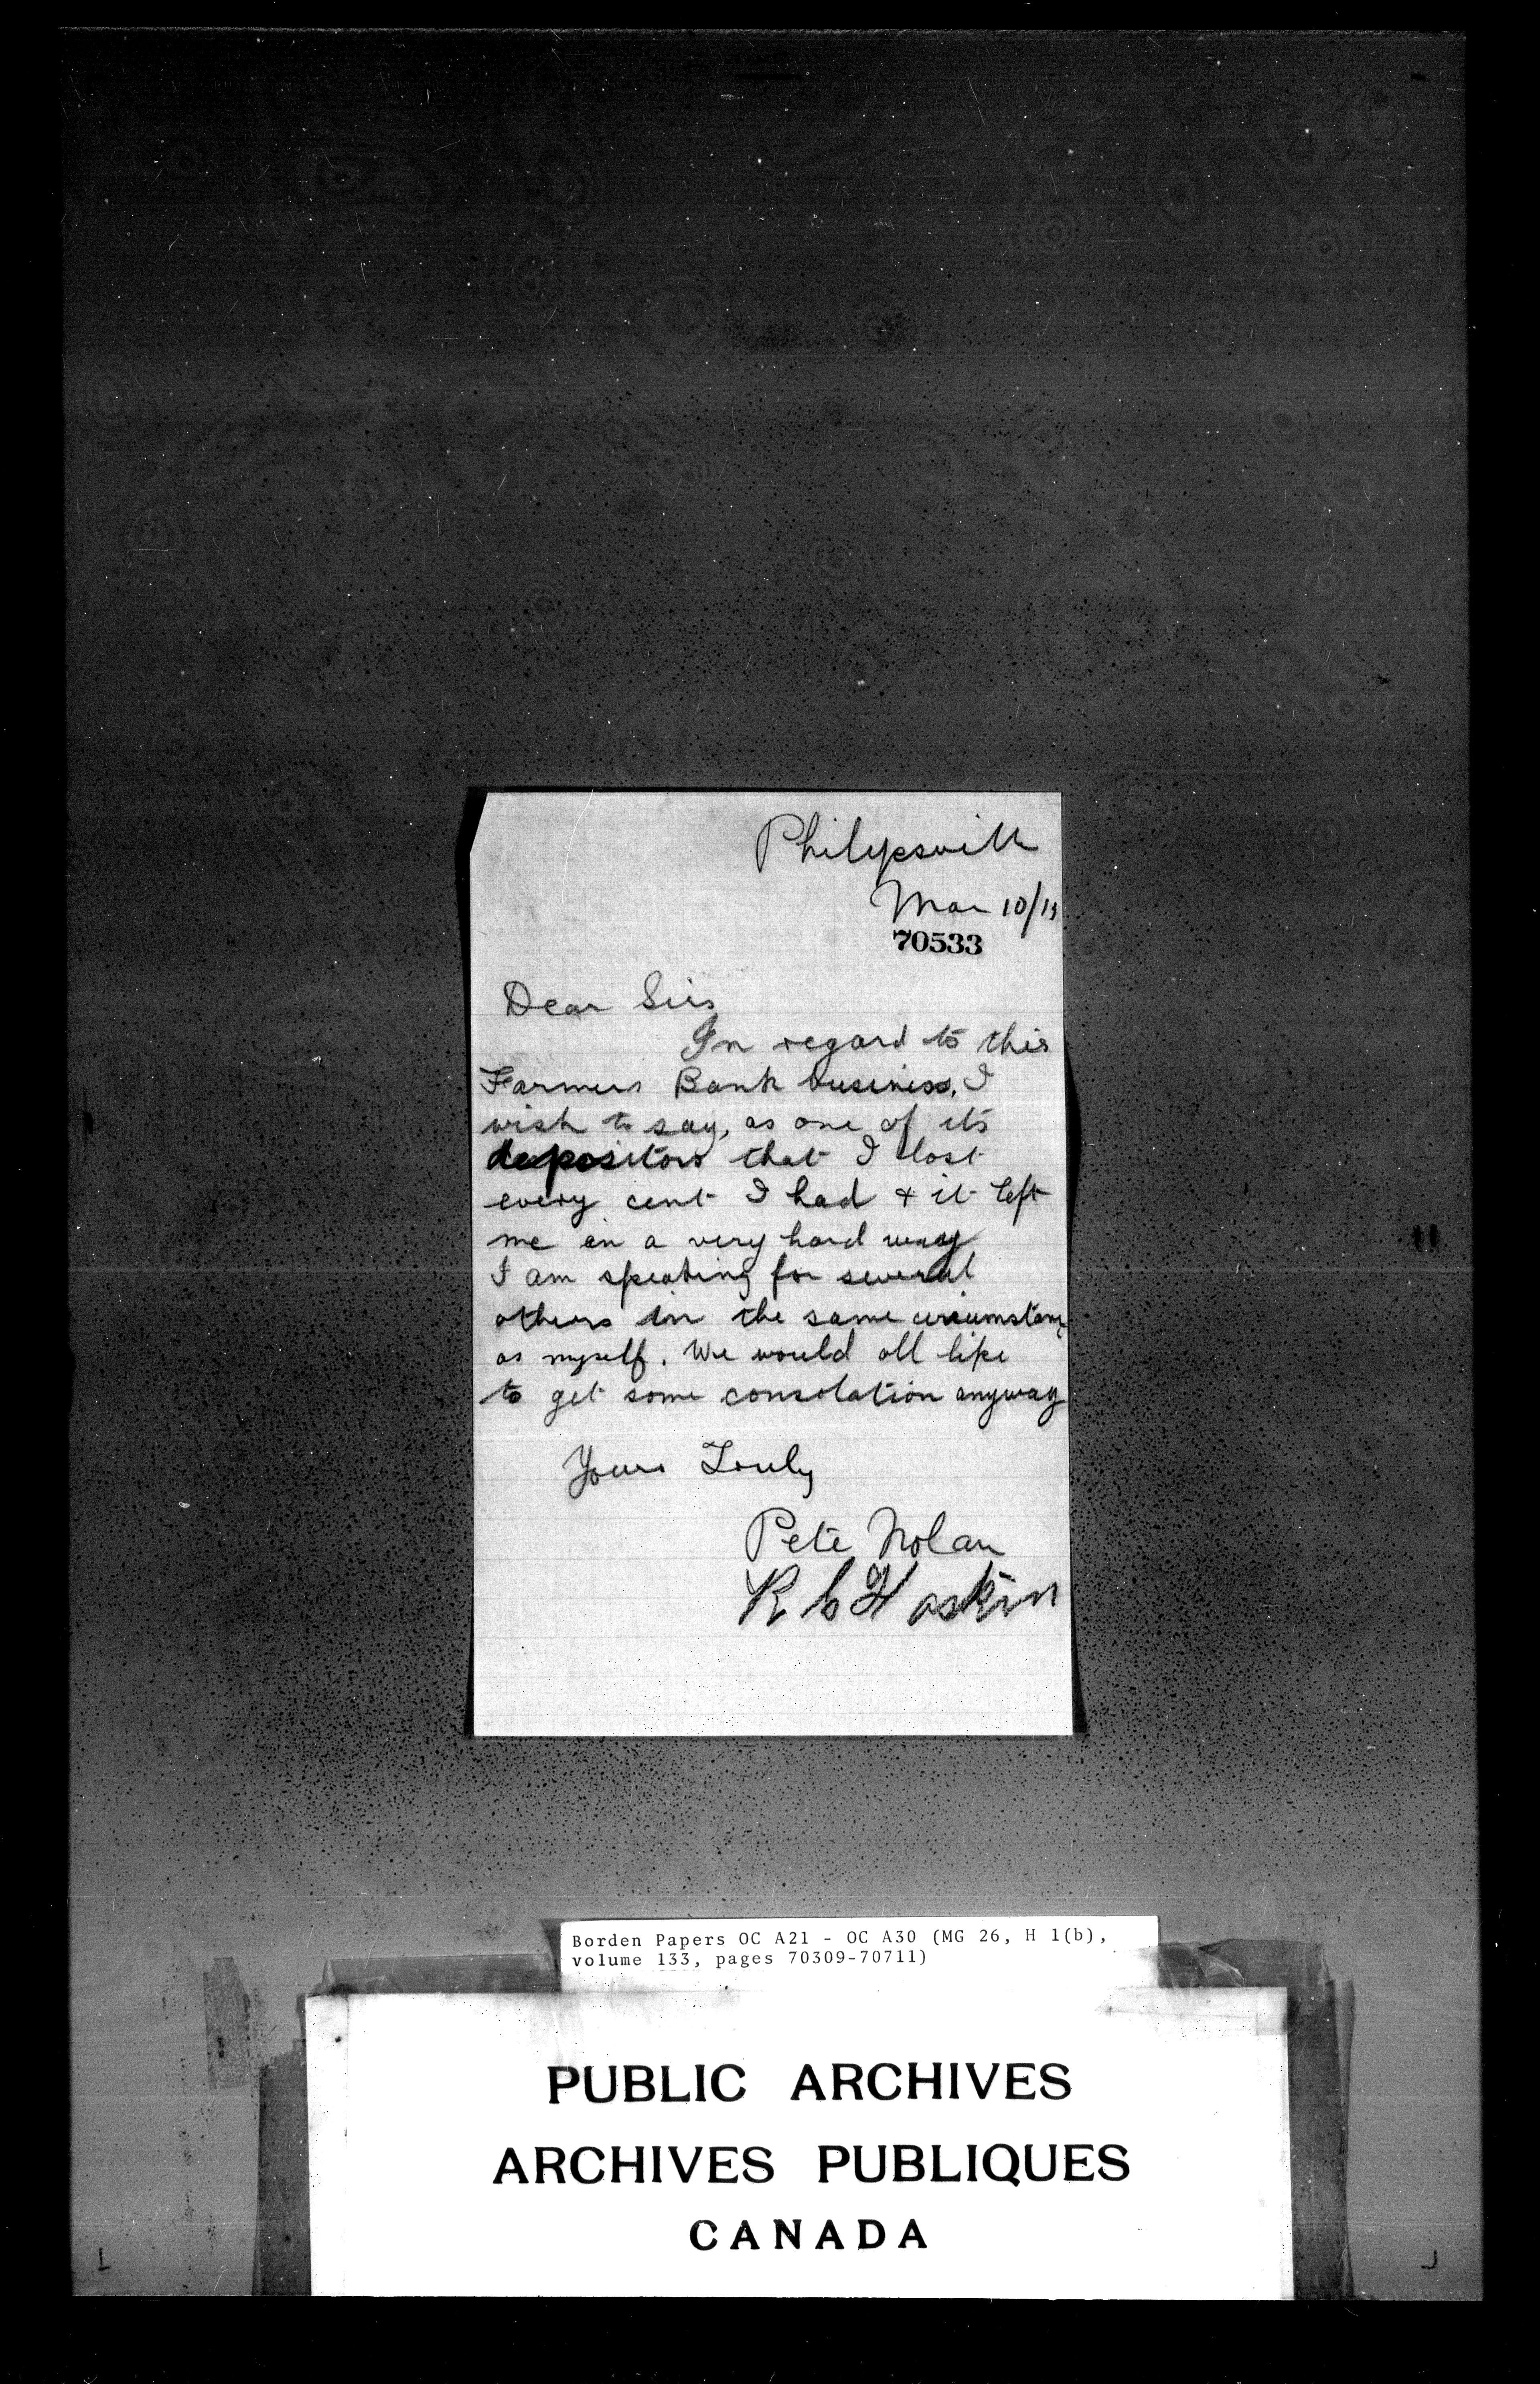 Philipsville
Mar 10/13
70533
Dear Sirs
In regard to this
Farmers Bank business, I
wish to say, as one of its
depositors that I lost
every cent I had + it left
me in a very hard way
I am speaking for several
others in the same circumstance
as myself. We would all like
to get some consolation anyway
Yours Truly
Pete Nolan
R C Haskin
Borden Papers OC A21 - OC A30 (MG 26, H 1(b),
volume 133, pages 70309-70711)
PUBLIC ARCHIVES
ARCHIVES PUBLIQUES
CANADA